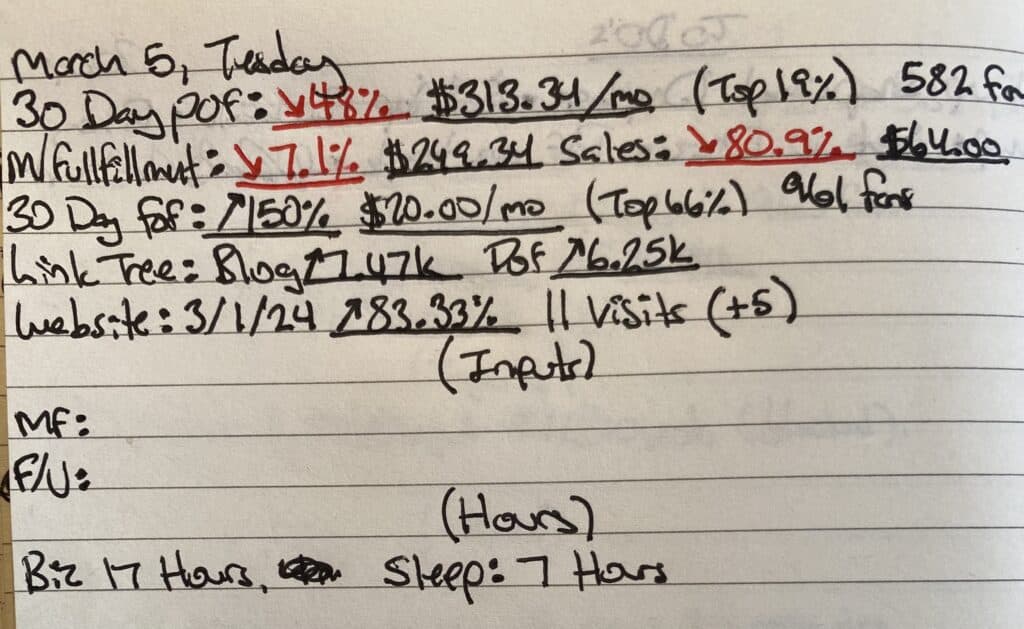 March 5, Tuesday
30 Day POF: ↘48% $313.34/mo (Top 19%) 582 fan
M/Fullfillment: ↘7.1% $249.34 Sales: ↘80.9% $64.00
30 Day FOF: ↗150% $20.00/mo (Top 66%) 961 fans
Link Tree: Blog↗7.47K POF ↗6.25K
Website: 3/1/24 ↗83.33% 11 Visits (+5)
(Inputs)
MF:
F/U:
(Hours)
Biz 17 Hours, Sleep: 7 Hours